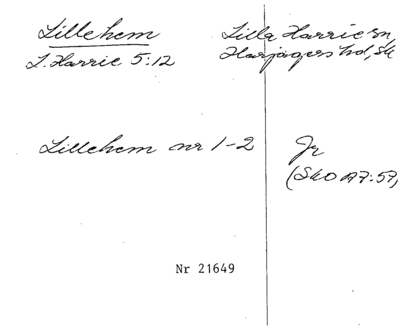 Lillehem
L. Harrie 5:12
Lilla Harrie sn,
Harjagers hd, Sk
Lillehem nr 1-2
Jr
(SkO A7:57)
Nr 21649